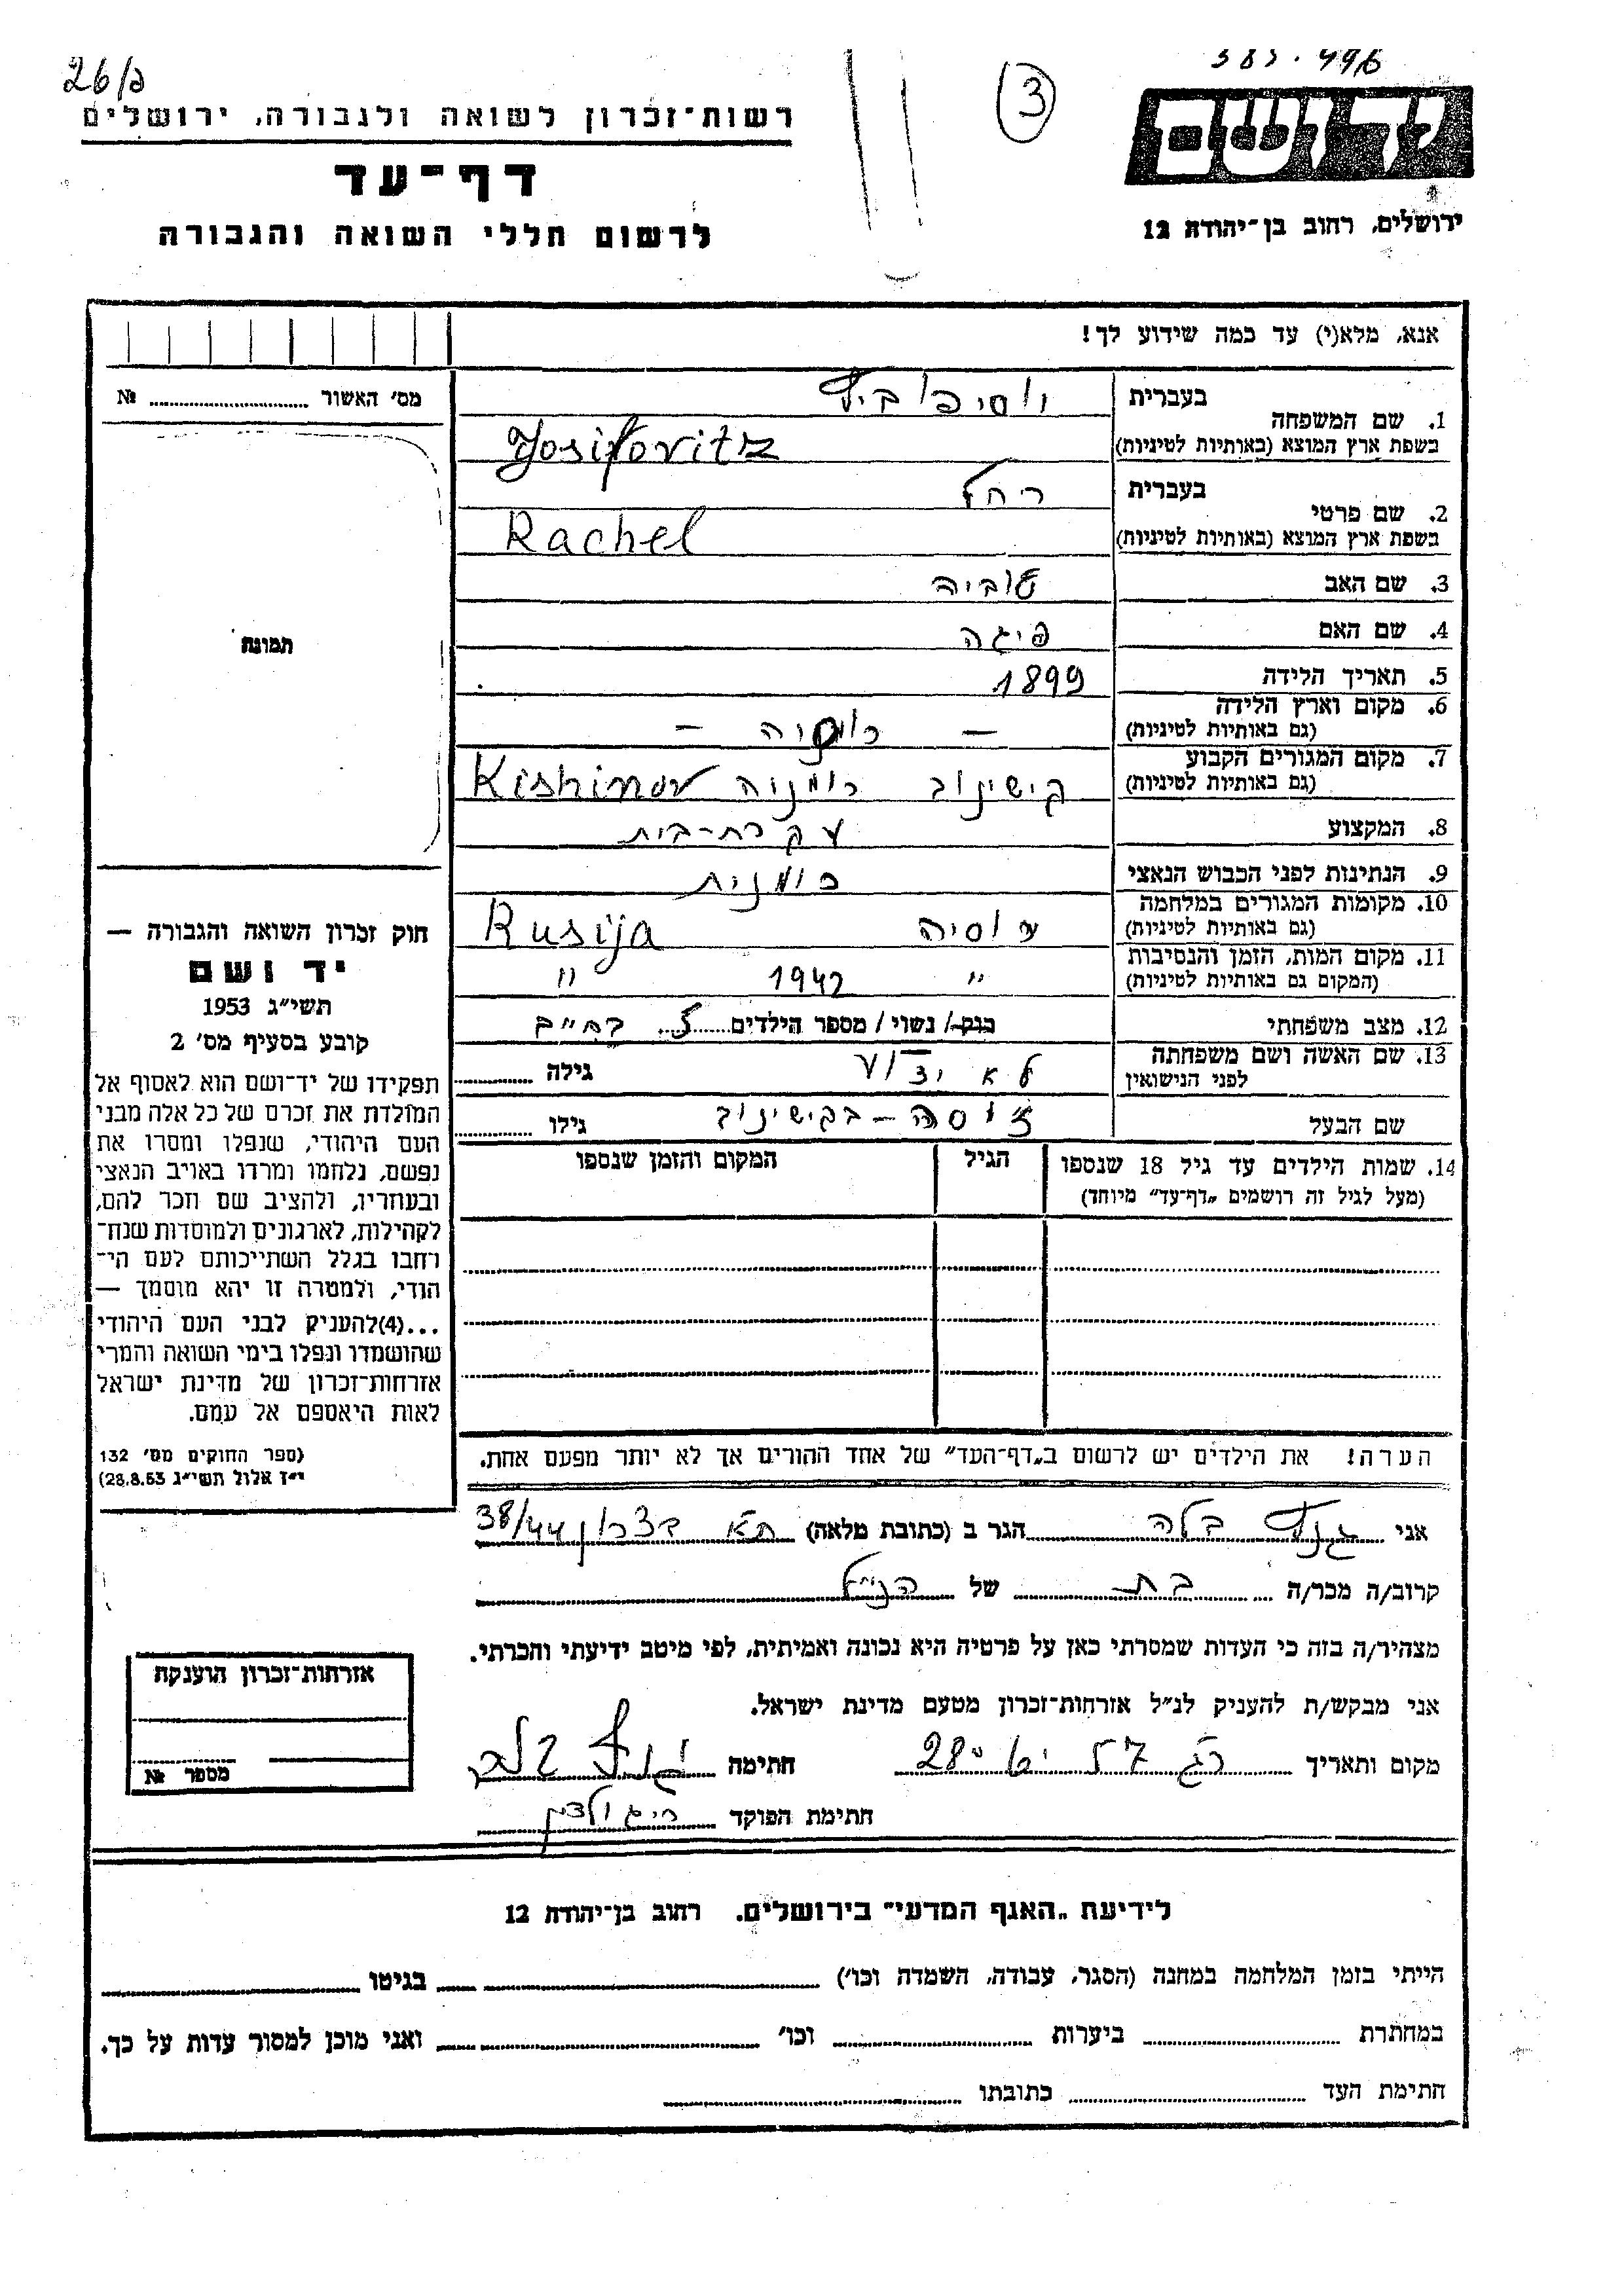 26/פ
3
רשות־זכרון לשואה ולגבורה, ירושלים
דף־עד
לרשום חללי השואה והגבורה
ידושם
ירושלים, רחוב בן־יהודה 12
אנא, מלא(י) עד כמה שידוע לך!
מס' האשור № 
1. שם המשפחה
בעברית
בשפת ארץ המוצא (באותיות לטיניות) Yosifovitz
2. שם פרטי
בעברית רחל
בשפת ארץ המוצא (באותיות לטיניות) Rachel
3. שם האב טוביה
4. שם האם פיגה
5. תאריך הלידה 1899
6. מקום וארץ הלידה — רומניה —
(גם באותיות לטיניות)
7. מקום המגורים הקבוע
(גם באותיות לטיניות) קישינוב רומניה Kishinov
8. המקצוע עקרת-בית
9. הנתינות לפני הכבוש הנאצי רומנית
10. מקומות המגורים במלחמה
(גם באותיות לטיניות) רוסיה Rusija
11. מקום המות, הזמן והנסיבות
(המקום גם באותיות לטיניות) " 1942 "
12. מצב משפחתי רוק/ נשוי/ מספר הילדים בחיים
13. שם האשה ושם משפחתה
לפני הנישואין לא ידוע גילה
שם הבעל בקישינוב גילו
14. שמות הילדים עד גיל 18 שנספו
(מעל לגיל זה רושמים „דף־עד" מיוחד)
הגיל
המקום והזמן שנספו
הערה! את הילדים יש לרשום ב„דף־העד" של אחד ההורים אך לא יותר מפעם אחת.
תמונה
חוק זכרון השואה והגבורה —
יד ושם
תשי"ג 1953
קובע בסעיף מס' 2
תפקידו של יד־ושם הוא לאסוף אל
המולדת את זכרם של כל אלה מבני
העם היהודי, שנפלו ומסרו את
נפשם, נלחמו ומרדו באויב הנאצי
ובעוזריו, ולהציב שם וזכר להם,
לקהילות, לארגונים ולמוסדות שנח־
רחבו בגלל השתייכותם לעם הי־
הודי, ולמטרה זו יהא מוסמך —
...(4)להעניק לבני העם היהודי
שהושמדו ונפלו בימי השואה והמרי
אזרחות־זכרון של מדינת ישראל
לאות היאספם אל עמם.
(ספר החוקים מס' 132
י"ז אלול תשי"ג 28.8.53)
אני בלה הגר ב (כתובת מלאה) ת"א 38/44
קרוב/ה מכר/ה בת של הנ"ל
מצהיר/ה בזה כי העדות שמסרתי כאן על פרטיה היא נכונה ואמיתית, לפי מיטב ידיעתי והכרתי.
אני מבקש/ת להעניק לנ"ל אזרחות־זכרון מטעם מדינת ישראל.
מקום ותאריך חתימה
חתימת הפוקד
אזרחות־זכרון הוענקה
מספר №
לידיעת „האגף המדעי" בירושלים. רחוב בן־יהודה 12
הייתי בזמן המלחמה במחנה (הסגר, עבודה, השמדה וכו') בגיטו
במחתרת ביערות וכו' ואני מוכן למסור עדות על כך.
חתימת העד כתובתו